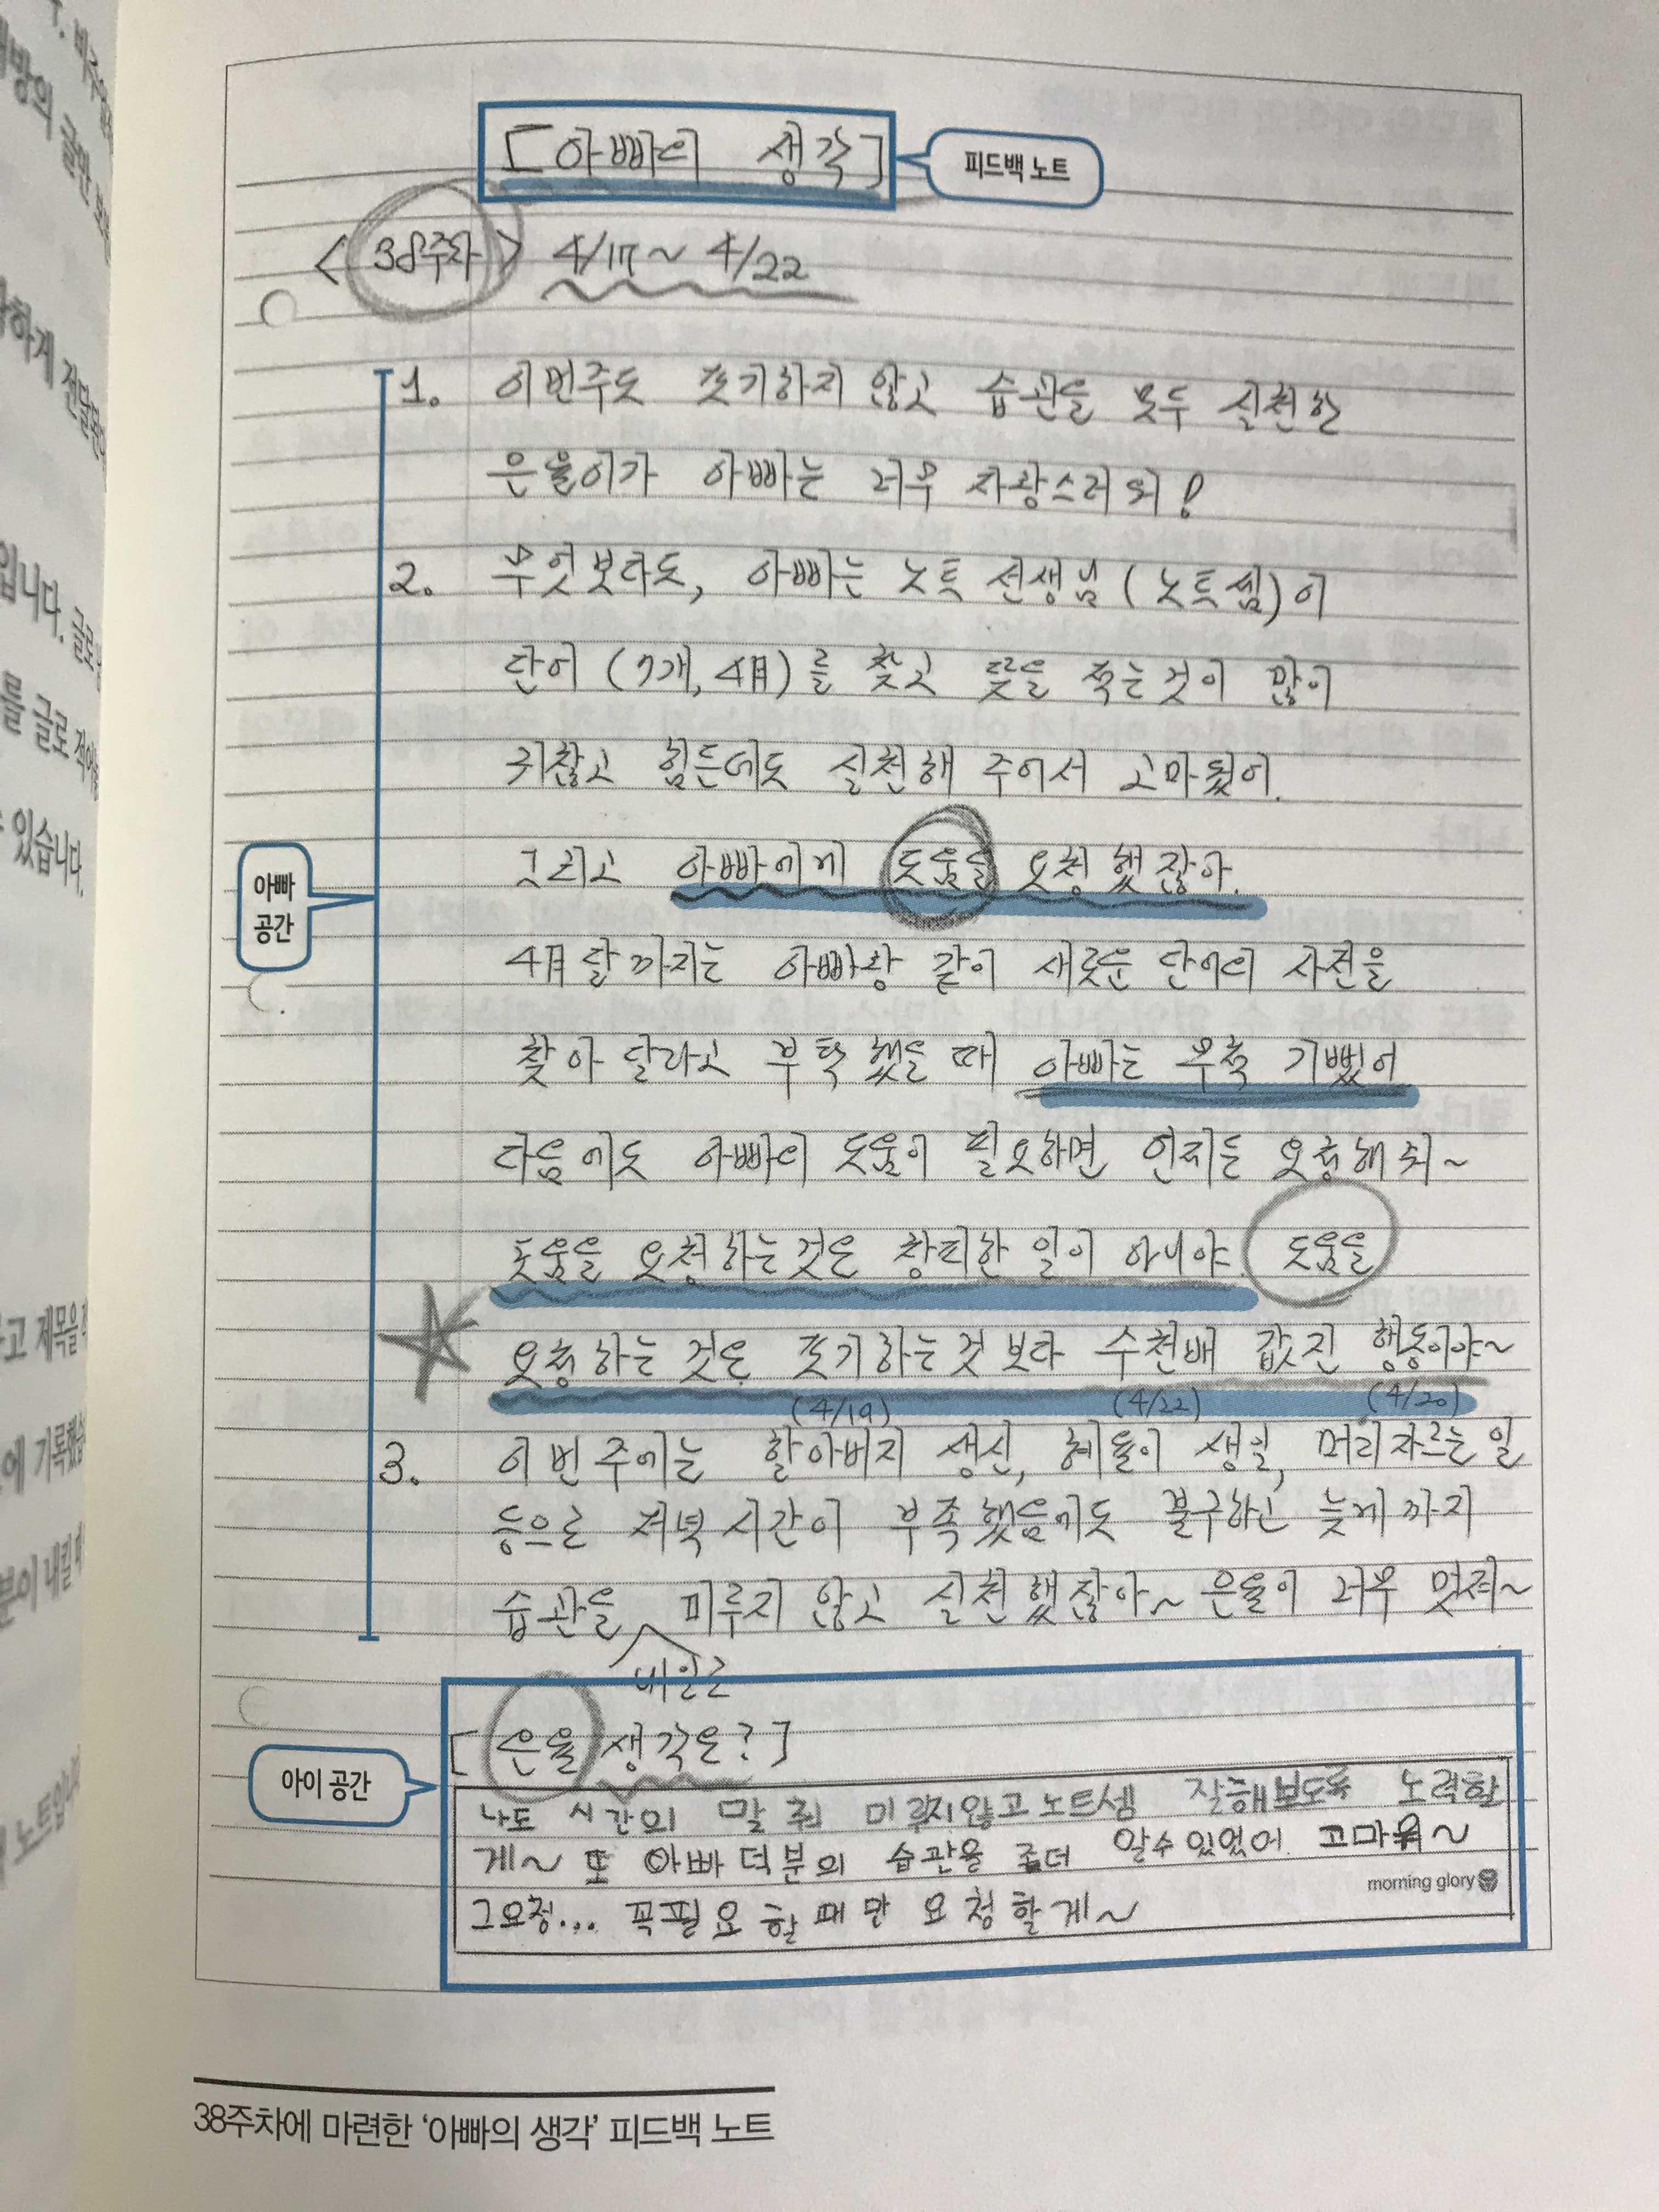 [아빠의 생각]
피드백 노트
<38주차> 4/17 ~ 4/22
1. 이번주도 포기하지 않고 습관을 모두 실천한
은율이가 아빠는 너무 자랑스러워!
2. 무엇보다도, 아빠는 노트 선생님 (노트쌤)이
단어 (7개, 4月)를 찾고 뜻을 적는것이 많이
귀찮고 힘든데도 실천해 주어서 고마웠어.
그리고 아빠에게 도움을 요청했잖아.
아빠
공간
4月달까지는 아빠랑 같이 새로운 단어의 사전을
찾아 달라고 부탁했을 때 아빠는 무척 기뻤어
다음에도 아빠의 도움이 필요하면 언제든 요청해줘~
도움을 요청하는것은 창피한 일이 아니야. 도움을
요청하는 것은 포기하는것 보다 수천배 값진 행동이야~
(4/19) (4/22) (4/20)
3. 이번주에는 할아버지 생신, 혜율이 생일, 머리자르는 일
등으로 저녁시간이 부족했음에도 불구하고 늦게까지
습관을 미루지 않고 실천했잖아~ 은율이 너무 멋져~
내일로
[은율 생각은?]
아이 공간
나도 시간의 말 줘 미루지않고 노트쌤 잘해보도록 노력할
게~ 또 아빠 덕분의 습관을 좀더 알수있었어. 고마워~
morning glory
그요청... 꼭필요할때만 요청할게~
38주차에 마련한 '아빠의 생각' 피드백 노트